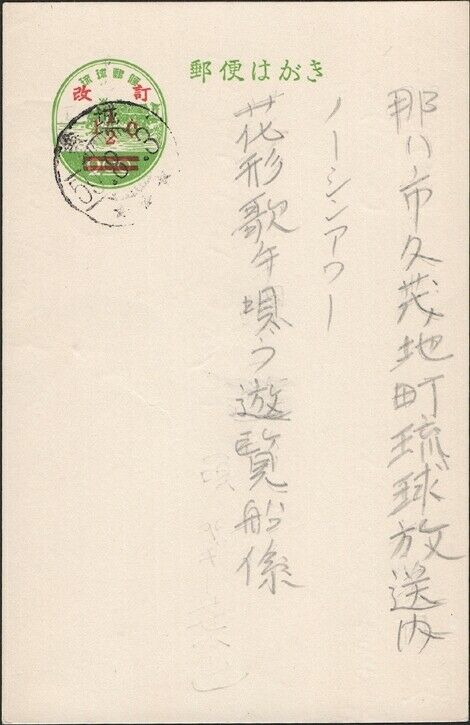 郵便はがき
琉球郵便
改訂
1 1/2 ¢
那ハ市久茂地町琉球放送内
ノーシンアワー
花形歌手唄う遊覧船係